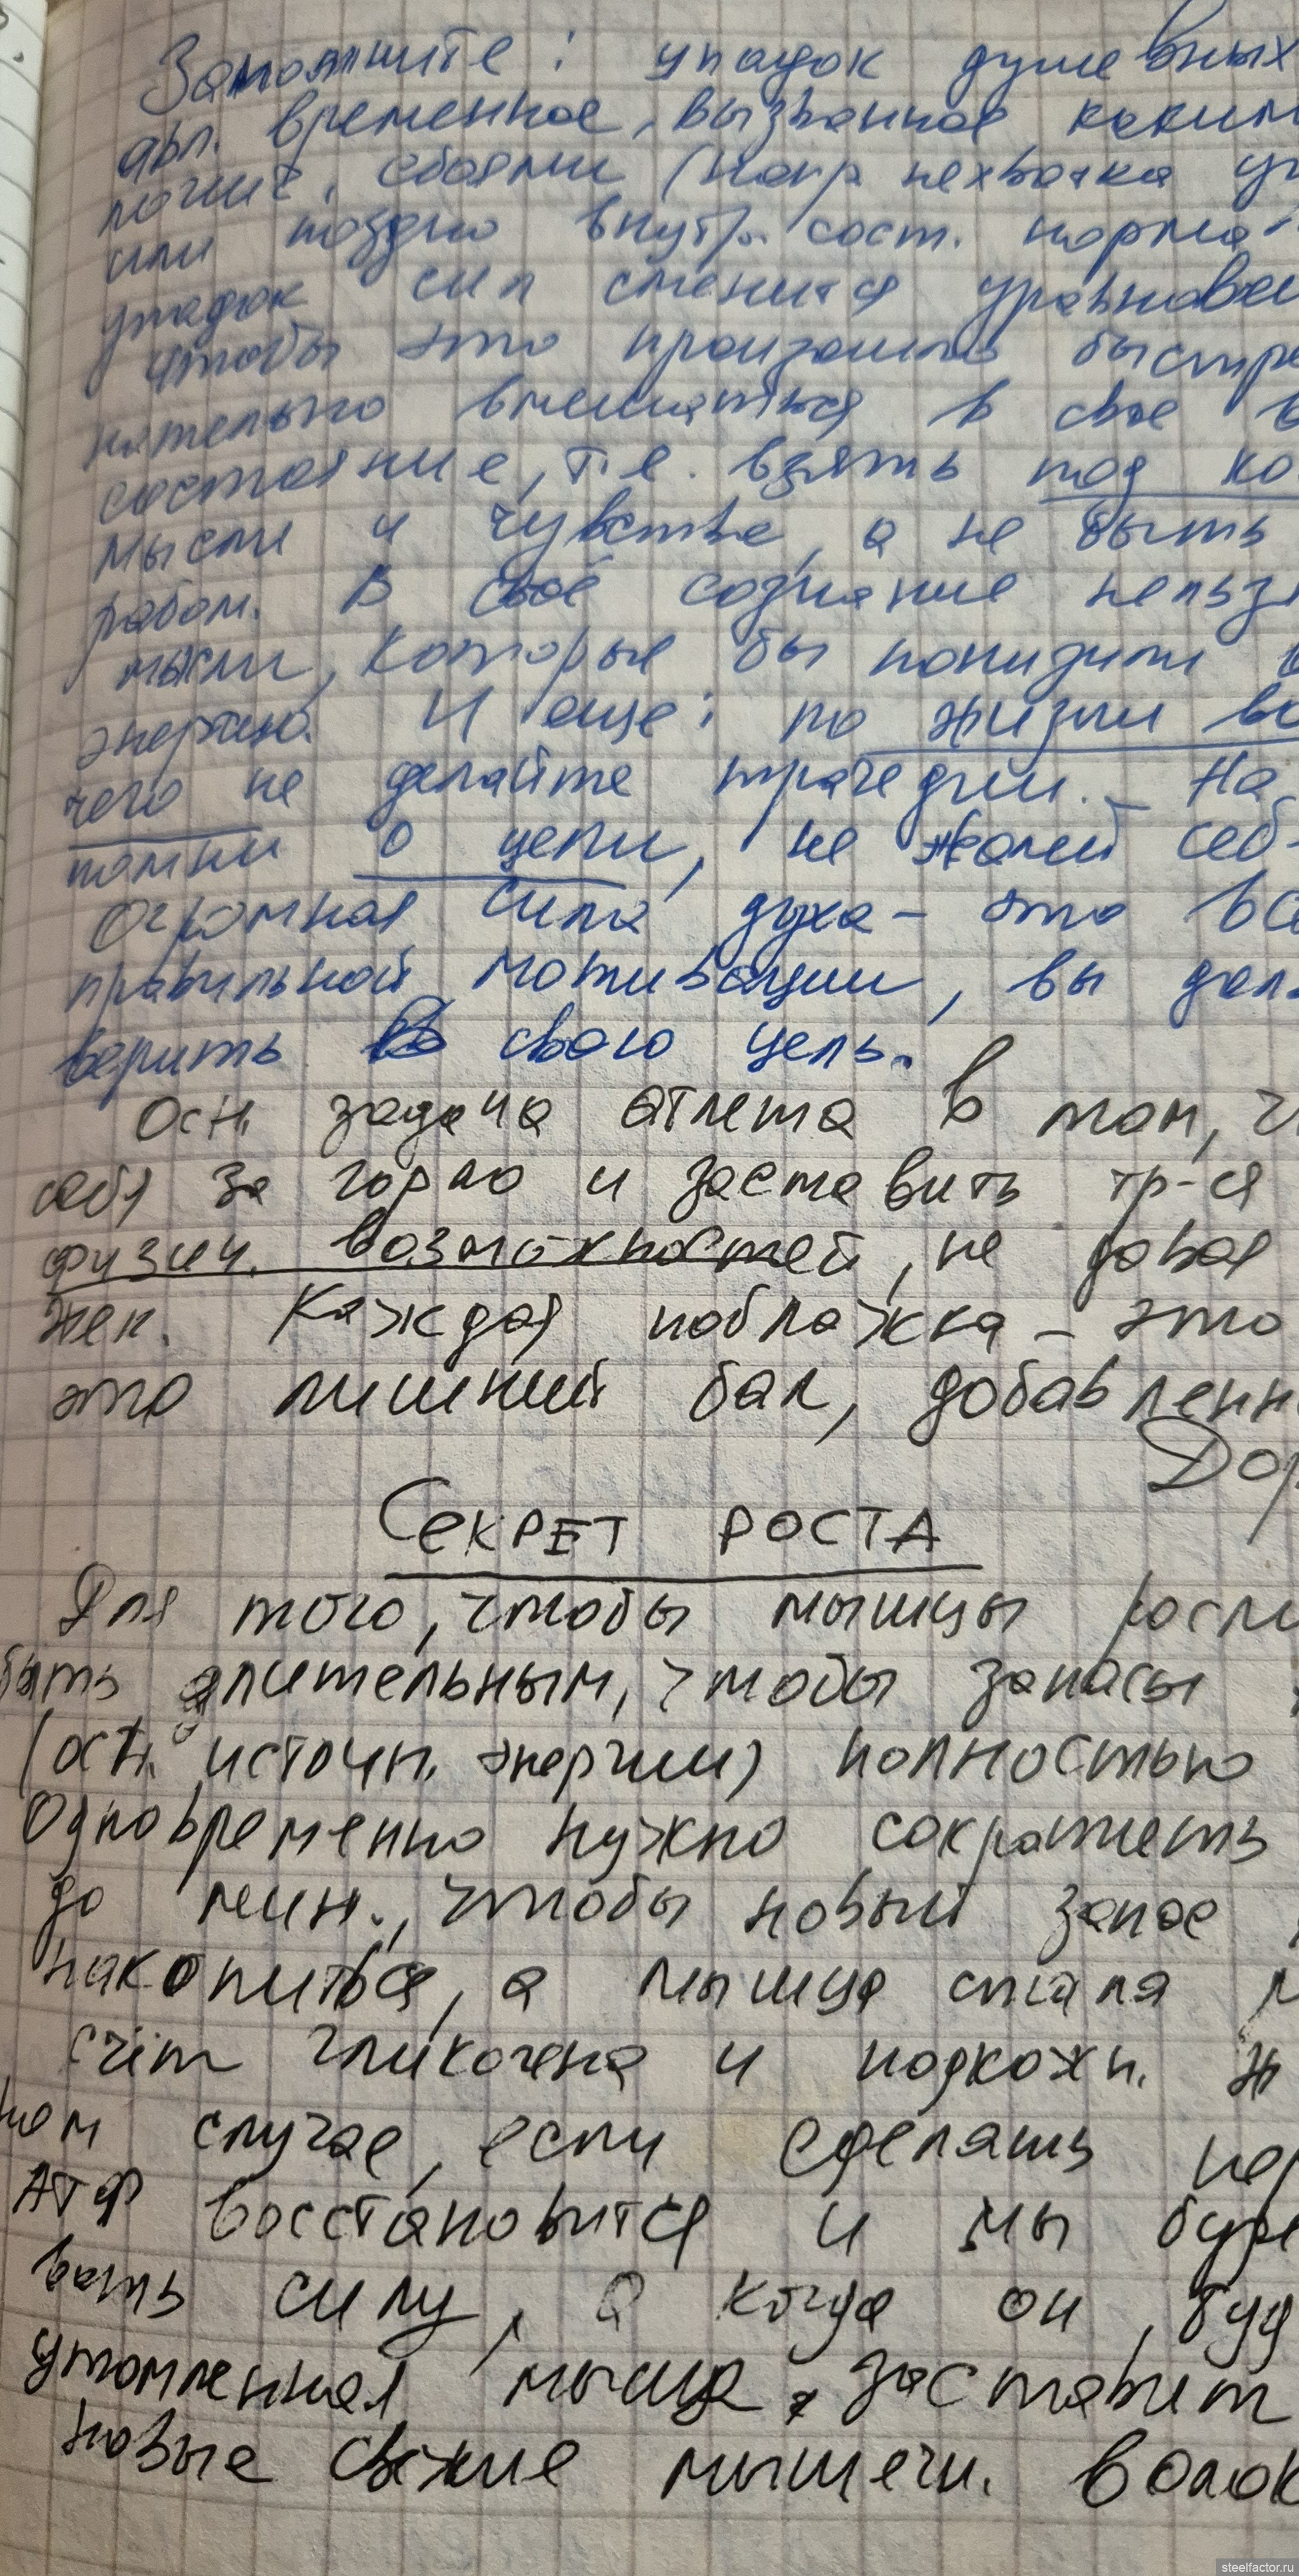 Запомните: упадок душевных
явл. временное, вызванное каким
логич. сбоями (напр нехватка
или поздно внутр. сост. норма
упадок сил сменится уравнове
Чтобы это произошло быстре
нательно вмешаться в свое в
состояние, т.е. взять под ко
мысли и чувства, а не быть
рабом. В своё сознание нельз
мысли, которые бы понизили
энергию. И еще: по жизни
чего не делайте трагедии. – На
помни о цели, не жалей себ
Огромная сила духа – это вс
правильной мотивации, вы дол
верить в свою цель.
Осн. задача атлета в том, ч
себя за горло и заставить тр-ся
физич. возможностей, не давая
жек. Каждая поблажка – это
это лишний бал, добавленн
Дор
Секрет роста
Для того, чтобы мышцы росли
быть длительным, чтобы запасы
(осн. источн. энергии) полностью
Одновременно нужно сократить
до мин., чтобы новый запас
накопиться, а мышца стала
счёт гликогена и подкожн. ж
ном случае, если сделать пер
АТФ восстановится и мы буде
вать силу, а когда он, буд
утомленная мышца, заставит
новые свежие мышечн. волок
steelfactor.ru